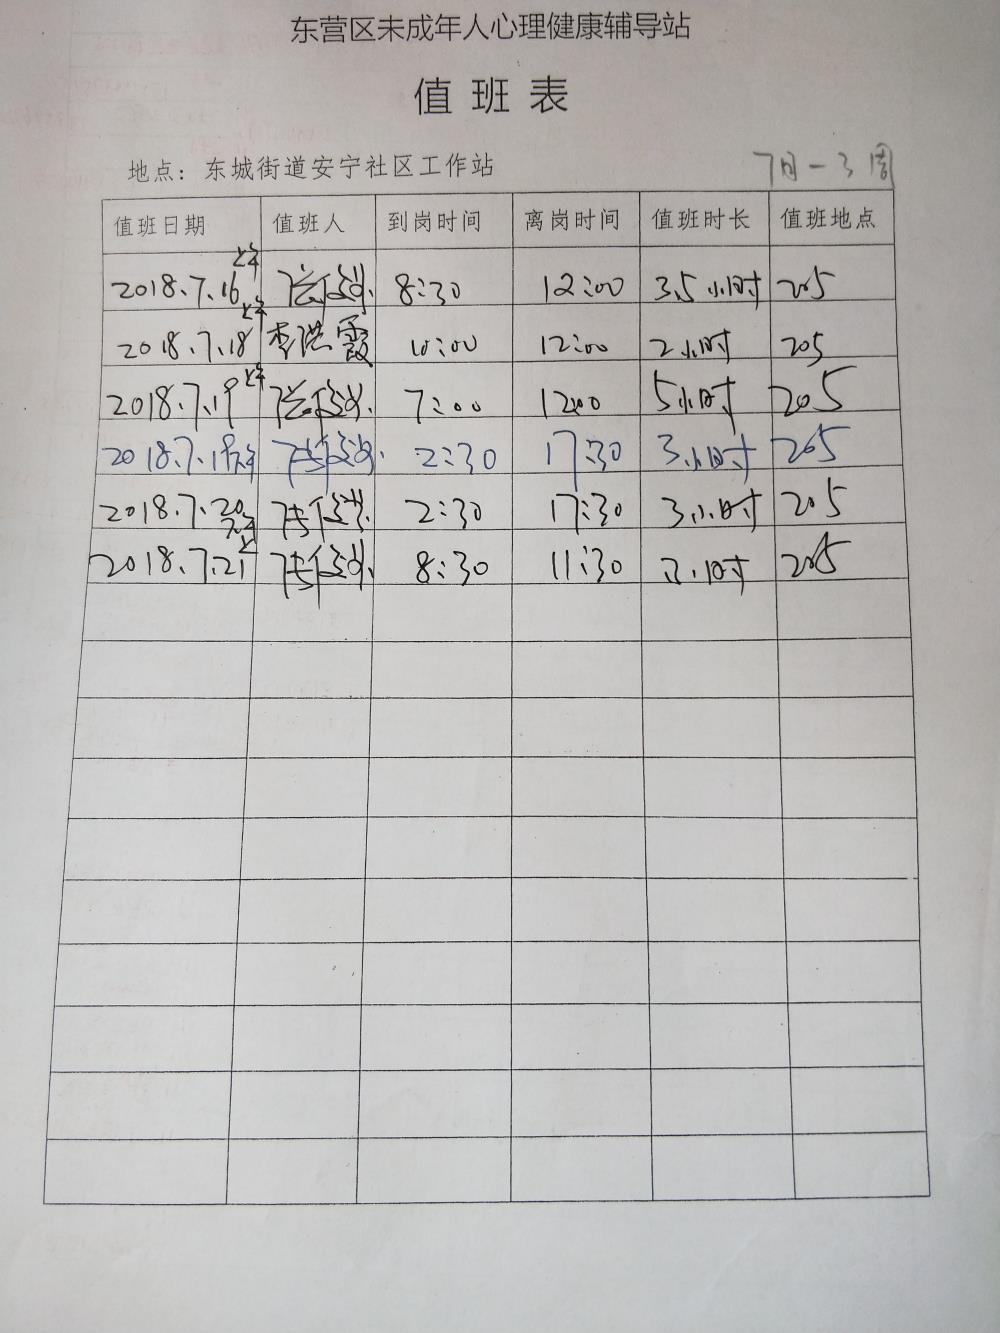 东营区未成年人心理健康辅导站
值班表
地点：东城街道安宁社区工作站 7月-3周
值班日期 值班人 到岗时间 离岗时间 值班时长 值班地点
2018.7.16上午 张 8:30 12:00 3.5小时 205
2018.7.18上午 李洪霞 10:00 12:00 2小时 205
2018.7.19上午 张 7:00 1200 5小时 205
2018.7.19下午 张 2:30 17:30 3小时 205
2018.7.20下午 张 2:30 17:30 3小时 205
2018.7.21上 张 8:30 11:30 3小时 205